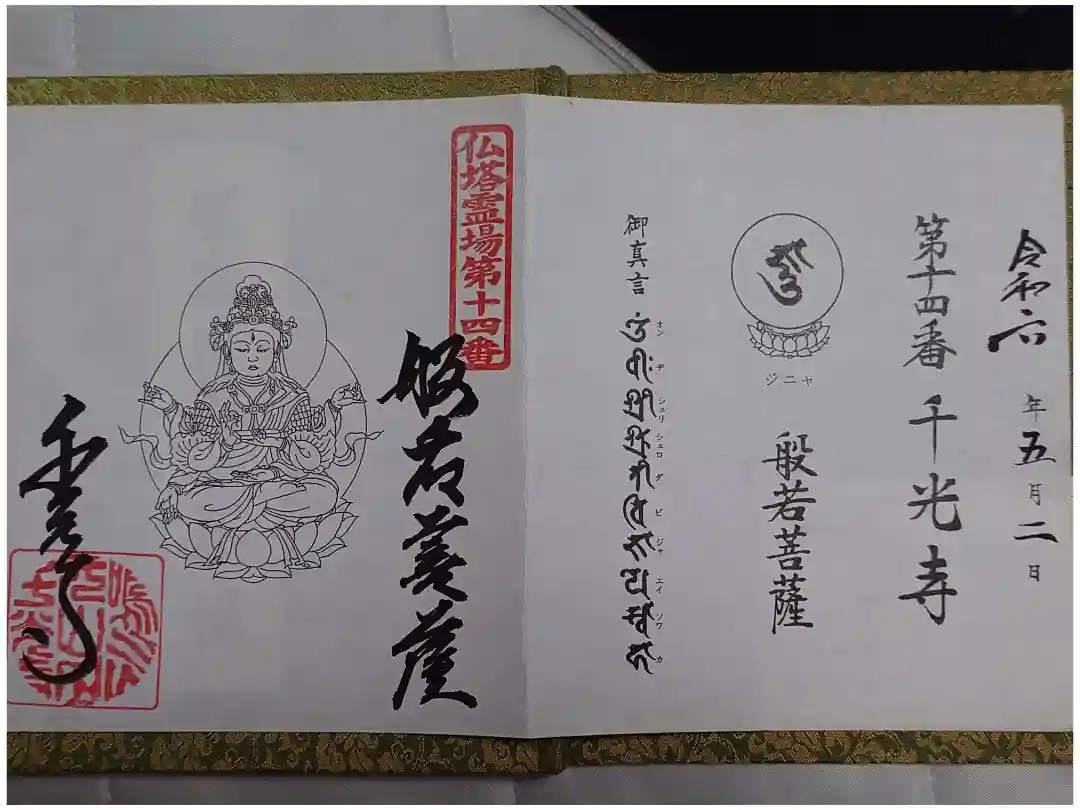 令和六年五月二日
第十四番 千光寺
ジニャ
般若菩薩
御真言
オン ヂ シュリ シュロ ダ ビ ジャ エイ ソワ カ
仏塔霊場第十四番
般若菩薩
千光寺